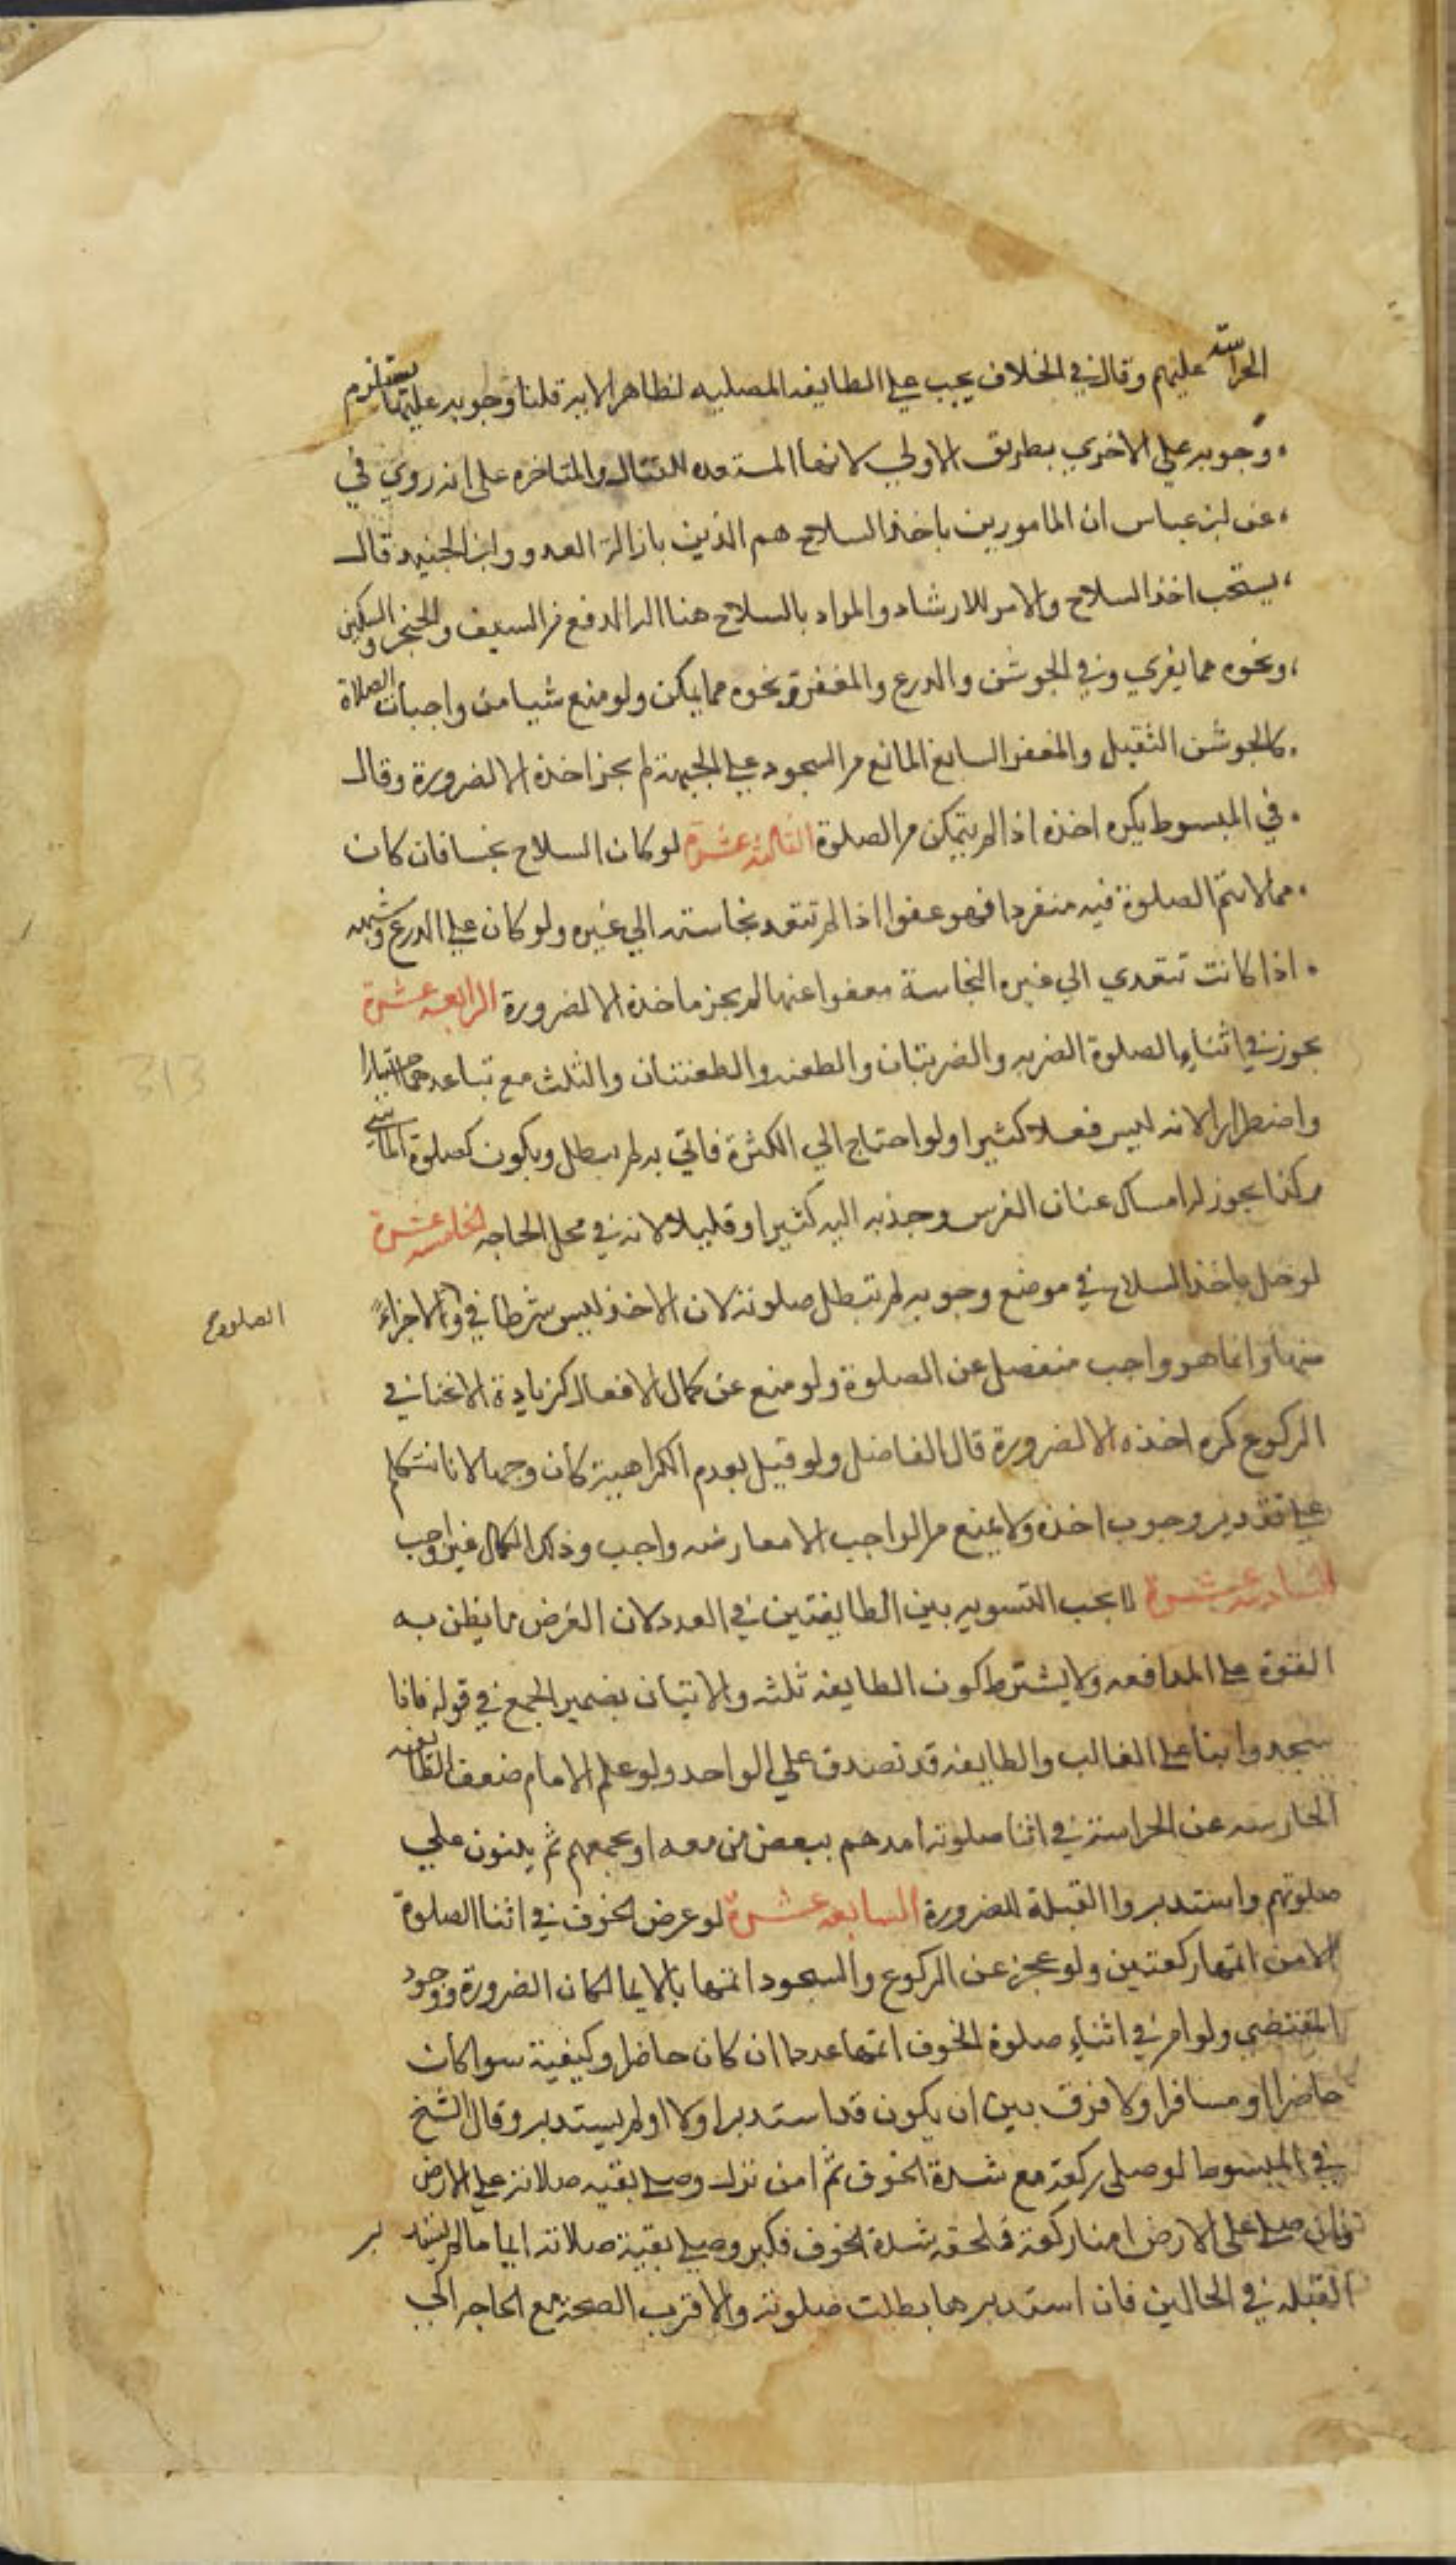 الحراسة عليهم وقال في الخلاف يجب علي الطايفه المصليه لظاهر الايه قلنا وجوبه عليها يستلزم
وجوبه علي الاخري بطريق الاولي لانها المستعده للقتال والمتاخره علي انه روي في
عن ابن عباس ان المامورين باخذ السلاح هم الذين بازالة العدو وابن الجنيد قال
يستحب اخذ السلاح والامر للارشاد والمراد بالسلاح هنا اله الدفع من السيف والخنجر والسكين
ونحوه مما يفري وفي الجوشن والدرع والمغفر ونحوه مما يكن ولو منع شيا من واجبات الصلاة
كالجوشن الثقيل والمغفر السابغ المانع من السجود علي الجبهة لم يجز اخذه الا لضرورة وقال
في المبسوط يكره اخذه اذا لم يتمكن من الصلوة الثالثه عشرة لو كان السلاح نجسا فان كان
مما لا تتم الصلوة فيه منفردا فهو عفوا اذا لم تتعد نجاسته الي غيره ولو كان علي الدرع وشبهه
اذا كانت تتعدي الي غيره النجاسة معفوا عنها لم يجز ماخذه الا لضرورة الرابعه عشرة
يجوز في اثناء الصلوة الضربه والضربتان والطعنه والطعنتان والثلث مع تباعدهما اختيارا
واضطرارا لانه ليس فعلا كثيرا ولو احتاج الي الكثرة فاتي به لم يبطل ويكون كصلوة الماشي
وكذا يجوز له امساك عنان الفرس وجذبه اليه كثيرا وقليلا لانه في محل الحاجه الخامسه عشرة
لو خل باخذ السلاح في موضع وجوبه لم تبطل صلوته لان الاخذ ليس شرطا في ولا جزاءً
الصلوة صح
منها وانما هو واجب منفصل عن الصلوة ولو منع عن كمال الافعال كزيادة الانحنا في
الركوع كره اخذه الا لضرورة قال الفاضل ولو قيل بعدم الكراهية كان وجها لانا نتكلم
علي تقدير وجوب اخذه ولا يمنع من الواجب الا معارضه واجب وذلك الكمال غير واجب
السادسه عشرة لا يجب التسويه بين الطايفتين في العدد لان الغرض ما يظن به
القوة علي المدافعه ولا يشترط كون الطايفه ثلثه والاتيان بضمير الجمع في قوله فاذا
سجدوا بنا علي الغالب والطايفه قد تصدق علي الواحد ولو علم الامام ضعف الطايفه
الحارسه عن الحراسة في اثنا صلوته امدهم ببعض من معه او بجمعهم ثم يبنون علي
صلوتهم واستدبروا القبلة للضرورة السابعه عشرة لو عرض الخوف في اثنا الصلوة
الامن اتمها ركعتين ولو عجز عن الركوع والسجود اتمها بالايما لمكان الضرورة ووجود
المقتضي ولو امن في اثناء صلوة الخوف اتمها عددا ان كان حاضرا وكيفية سوا كان
حاضرا او مسافرا ولا فرق بين ان يكون قد استدبر اولا او لم يستدبر وقال الشيخ
في المبسوط لو صلى ركعة مع شدة الخوف ثم امن نزل وصلي بقيه صلاته علي الارض
فان صلي علي الارض امنا ركعة فلحقه شدة الخوف فكبر وصلي بقية صلاته ايما ما لم يستدبر
القبله في الحالين فان استدبرها بطلت صلوته والاقرب الصحة مع الحاجه الي